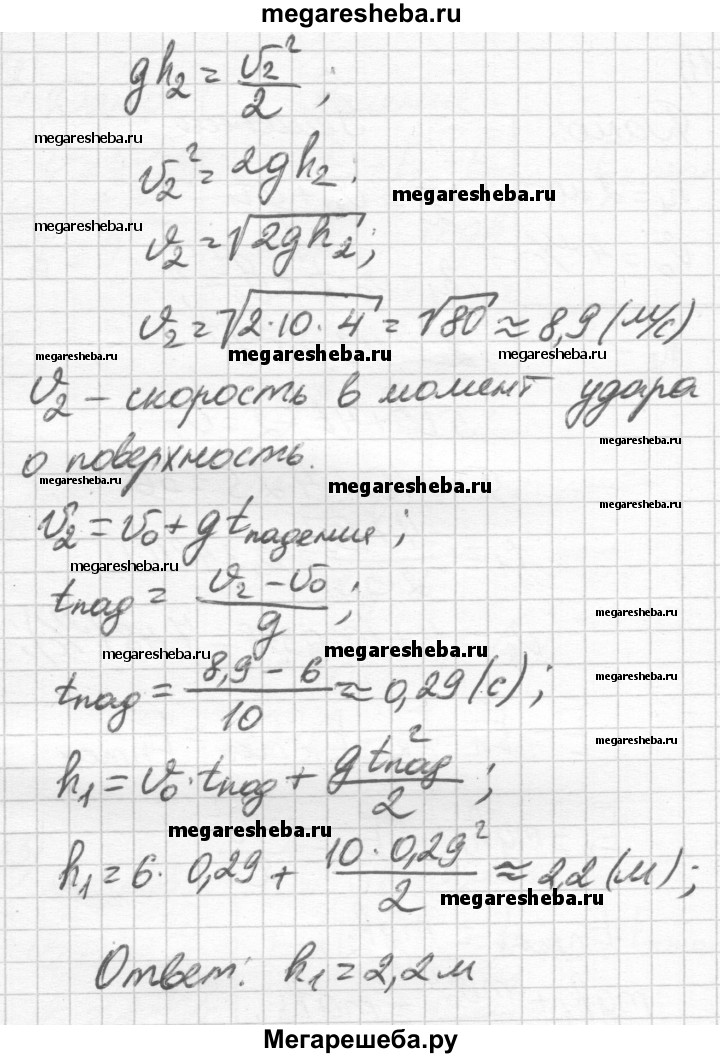 megaresheba.ru
gh₂ = v₂²/2 ;
megaresheba.ru
v₂² = 2gh₂ .
megaresheba.ru
megaresheba.ru
v₂ = √2gh₂ ;
v₂ = √2·10·4 = √80 ≈ 8,9 (м/с)
megaresheba.ru megaresheba.ru megaresheba.ru
v₂ – скорость в момент удара
megaresheba.ru
о поверхность.
megaresheba.ru megaresheba.ru
v₂ = v₀ + gt падения ;
megaresheba.ru
megaresheba.ru
tпад = (v₂ – v₀)/g ;
megaresheba.ru
megaresheba.ru megaresheba.ru
tпад = (8,9 – 6)/10 ≈ 0,29 (с) ;
megaresheba.ru
megaresheba.ru
h₁ = v₀ · tпад + gtпад²/2 ;
megaresheba.ru
h₁ = 6 · 0,29 + 10 · 0,29²/2 ≈ 2,2 (м) ;
megaresheba.ru
Ответ: h₁ = 2,2 м
Мегарешеба.ру